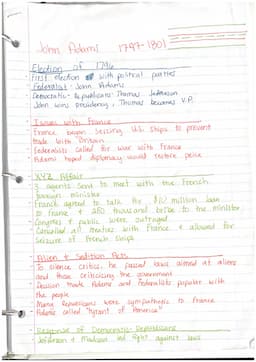 John Adams 1797-1801
Election of 1796
First election with political parties
Federalist: John Adams
Democratic-Republicans: Thomas Jefferson
John wins Presidency, Thomas becomes V.P.
Issues with France
France began seizing U.S. ships to prevent
trade with Britain
Federalists called for war with France
Adams hoped diplomacy would restore peace
XYZ Affair
3 agents sent to meet with the French
foreign minister
French agreed to talk for $12 million loan
to France & 250 thousand bribe to the minister
Congress & public were outraged
Cancelled all treaties with France & allowed for
seizure of French ships
Alien & Sedition Acts
To silence critics, he passed laws aimed at aliens
and those criticising the government
Decision made Adams and Federalists popular with
the people
Many Republicans were sympathetic to France
Adams called "Tyrant of America"
Response of Democratic-Republicans
Jefferson & Madison led fight against laws